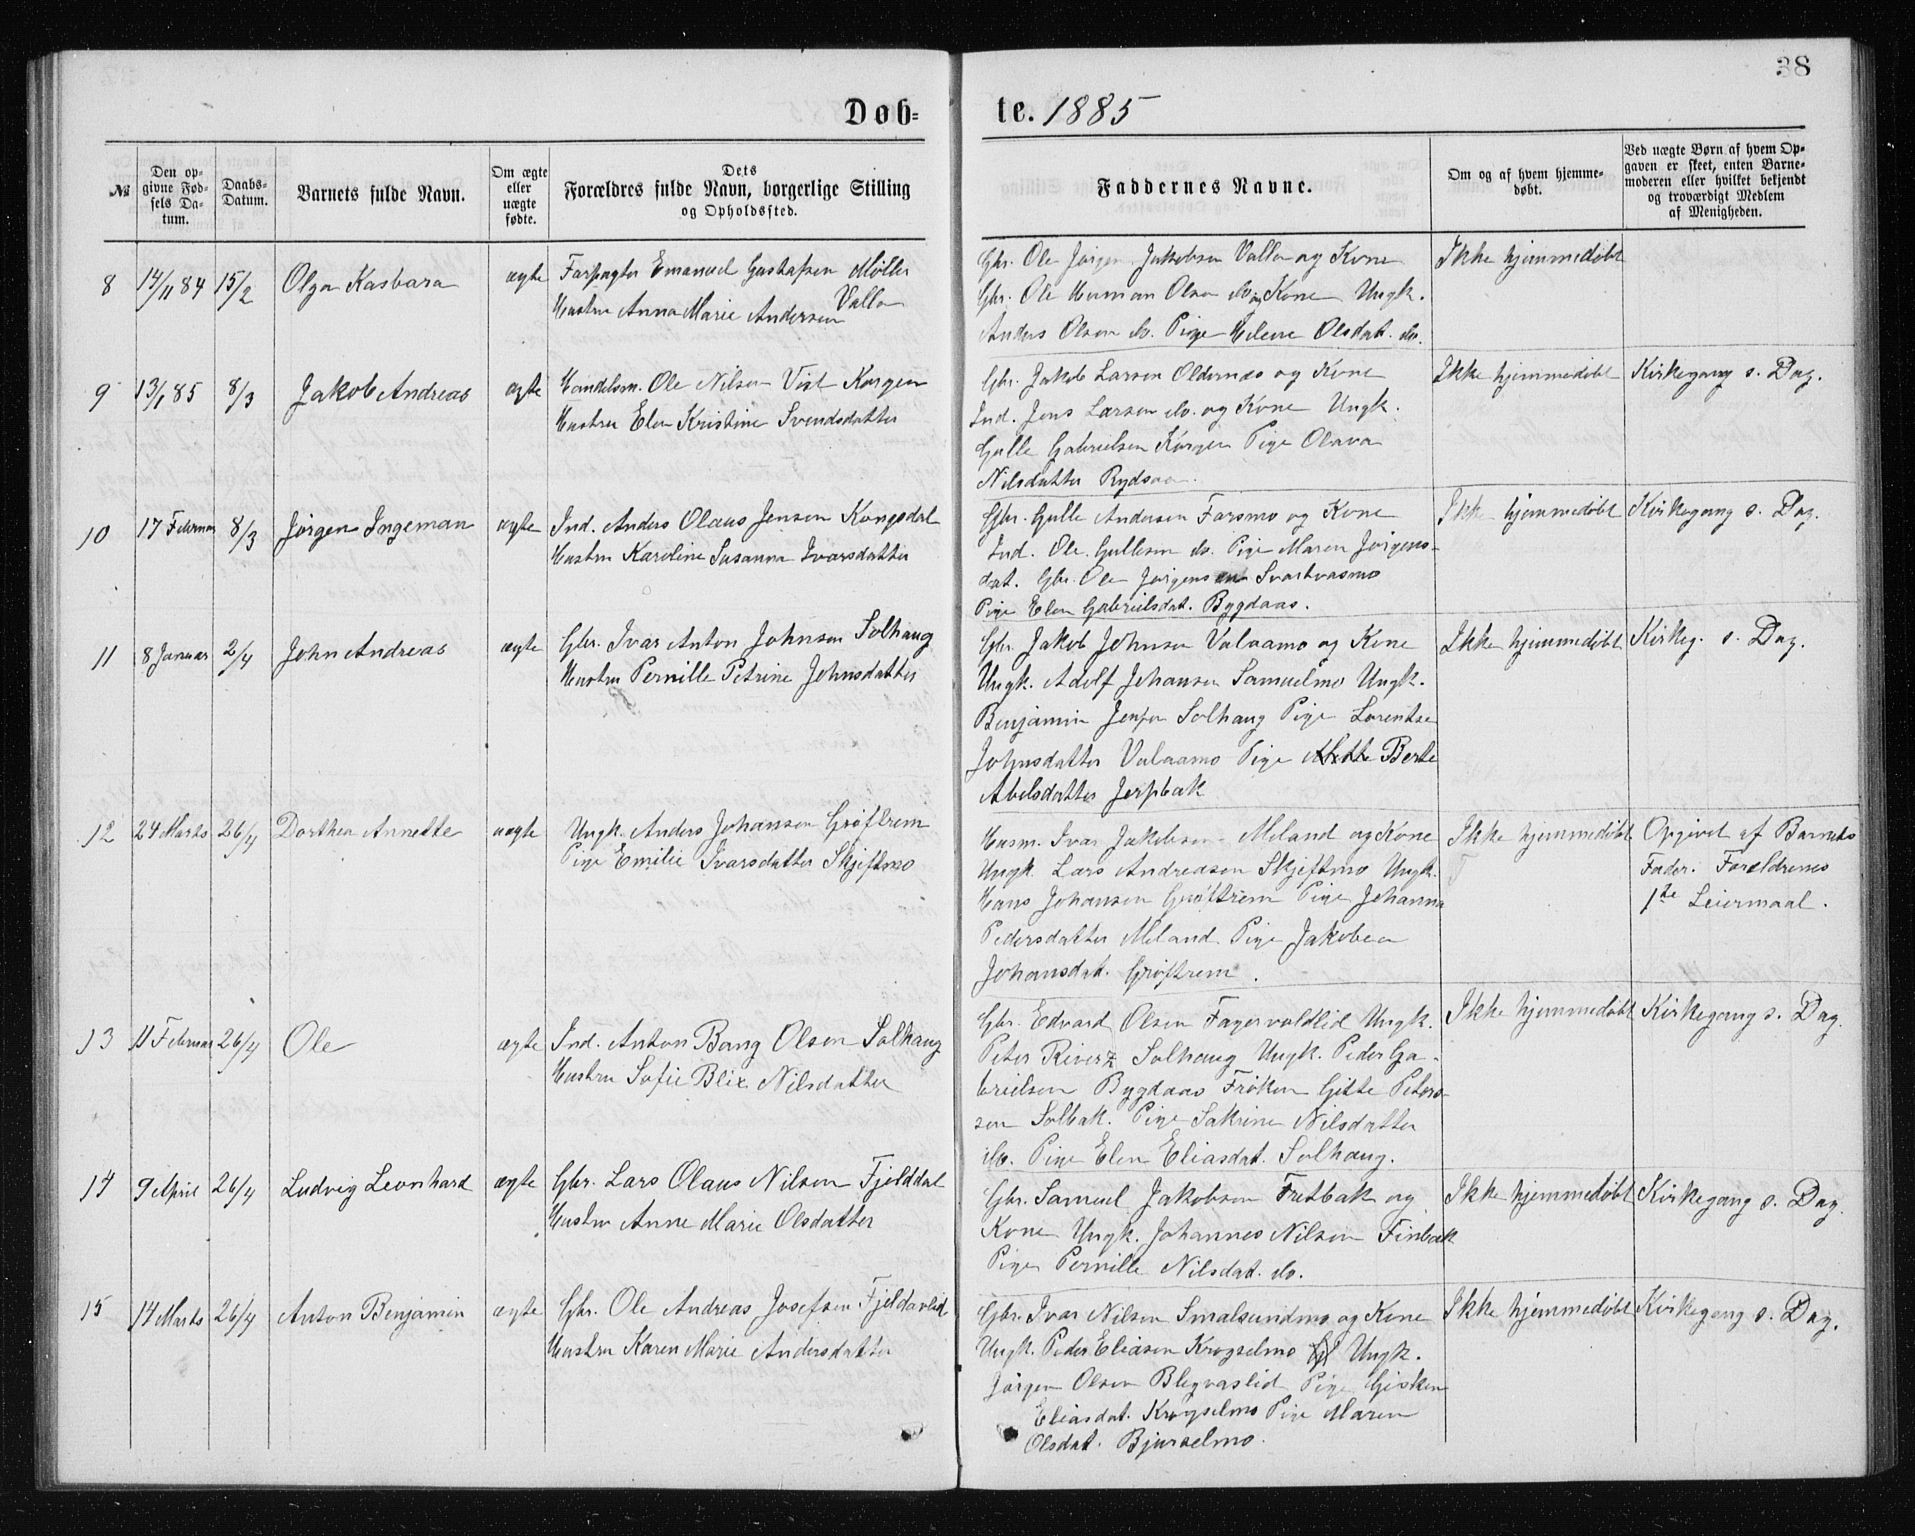 38
Døb=
te. 1885
№
Den op-
givne Fød-
sels Da-
tum.
Daabs-
Datum.
Barnets fulde Navn.
Om ægte
eller
uægte
fødte.
Dets
Forældres fulde Navn, borgerlige Stilling
og Opholdssted.
Faddernes Navne.
Om og af hvem hjemme-
døbt.
Ved uægte Børn af hvem Op-
gaven er skeet, enten Barne-
moderen eller hvilket bekjendt
og troværdigt Medlem
af Menigheden.
8 14/11 84 15/2 Olga Kasbara ægte Forpagter Emanuel Gustafsen Møller
Hustru Anna Marie Andersen Valla
Gbr. Ole Jørgen Jakobsen Valla og Kone
Gbr. Ole Herman Olsen do og Kone Ungk.
Anders Olsen do. Pige Helene Olsdat. do.
Ikke hjemmedøbt
9 13/1 85 8/3 Jakob Andreas ægte Handelsm. Ole Nilsen Vist Korgen
Hustru Elen Kristine Svendsdatter
Gbr. Jakob Larsen Oldernæs og Kone
Ind. Jens Larsen do. og Kone Ungk.
Gulle Gabrielsen Korgen Pige Olava
Nilsdatter Rydsaa.
Ikke hjemmedøbt
Kirkegang s. Dag.
10 17 Februar 8/3 Jørgen Ingeman ægte Ind. Anders Olaus Jensen Kongsdal
Hustru Karoline Susanna Ivarsdatter
Gbr. Gulle Andersen Farsmo og Kone
Ind. Ole Gullesen do. Pige Maren Jørgens-
dat. Gbr. Ole Jørgensen Svartvasmo
Pige Elen Gabrielsdat. Bygdaas.
Ikke hjemmedøbt
Kirkegang s. Dag.
11 8 Januar 2/4 John Andreas ægte Gbr. Ivar Anton Johnsen Solhaug
Hustru Pernille Petrine Johnsdatter
Gbr. Jakob Johnsen Valaamo og Kone
Ungk. Adolf Johansen Samuelmo Ungk.
Benjamin Jensen Solhaug Pige Lorentse
Johnsdatter Valaamo Pige Berte
Abelsdatter Jerpbak
Ikke hjemmedøbt
Kirkeg. s. Dag.
12 24 Marts 26/4 Dorthea Annette uægte Ungk. Anders Johansen Grøftrem
Pige Emilie Ivarsdatter Skjeftmo
Husm. Ivar Jakobsen Meland og Kone
Ungk. Lars Andreasen Skjeftmo Ungk.
Hans Johansen Grøftrem Pige Johanna
Pedersdatter Meland Pige Jakobea
Johansdat. Grøftrem.
Ikke hjemmedøbt
Opgivet af Barnets
Fader. Forældrenes
1ste Leiermaal.
13 11 Februar 26/4 Ole ægte Ind. Anton Bang Olsen Solhaug
Hustru Sofie Blix Nilsdatter
Gbr. Edvard Olsen Fagervoldlid Ungk.
Peter Riverz Solhaug Ungk. Peder Ga-
brielsen Bygdaas Frøken Gitte Peters-
sen Solbak. Pige Sakrine Nilsdatter
do. Pige Elen Eliasdat. Solhaug.
Ikke hjemmedøbt
Kirkegang s. Dag.
14 9 April 26/4 Ludvig Leonhard ægte Gbr. Lars Olaus Nilsen Fjelddal
Hustru Anne Marie Olsdatter
Gbr. Samuel Jakobsen Frutbak og
Kone Ungk. Johannes Nilsen Finbak
Pige Pernille Nilsdat. do.
Ikke hjemmedøbt
Kirkegang s. Dag.
15 14 Marts 26/4 Anton Benjamin ægte Gbr. Ole Andreas Josefsen Fjeldavlid
Hustru Karen Marie Andersdatter
Gbr. Ivar Nilsen Smalsundmo og Kone
Ungk. Peder Eliasen Krogselmo Ungk.
Jørgen Olsen Blegvaslid Pige Gisken
Eliasdat. Krogselmo Pige Maren
Olsdat. Bjurselmo.
Ikke hjemmedøbt
Kirkegang s. Dag.